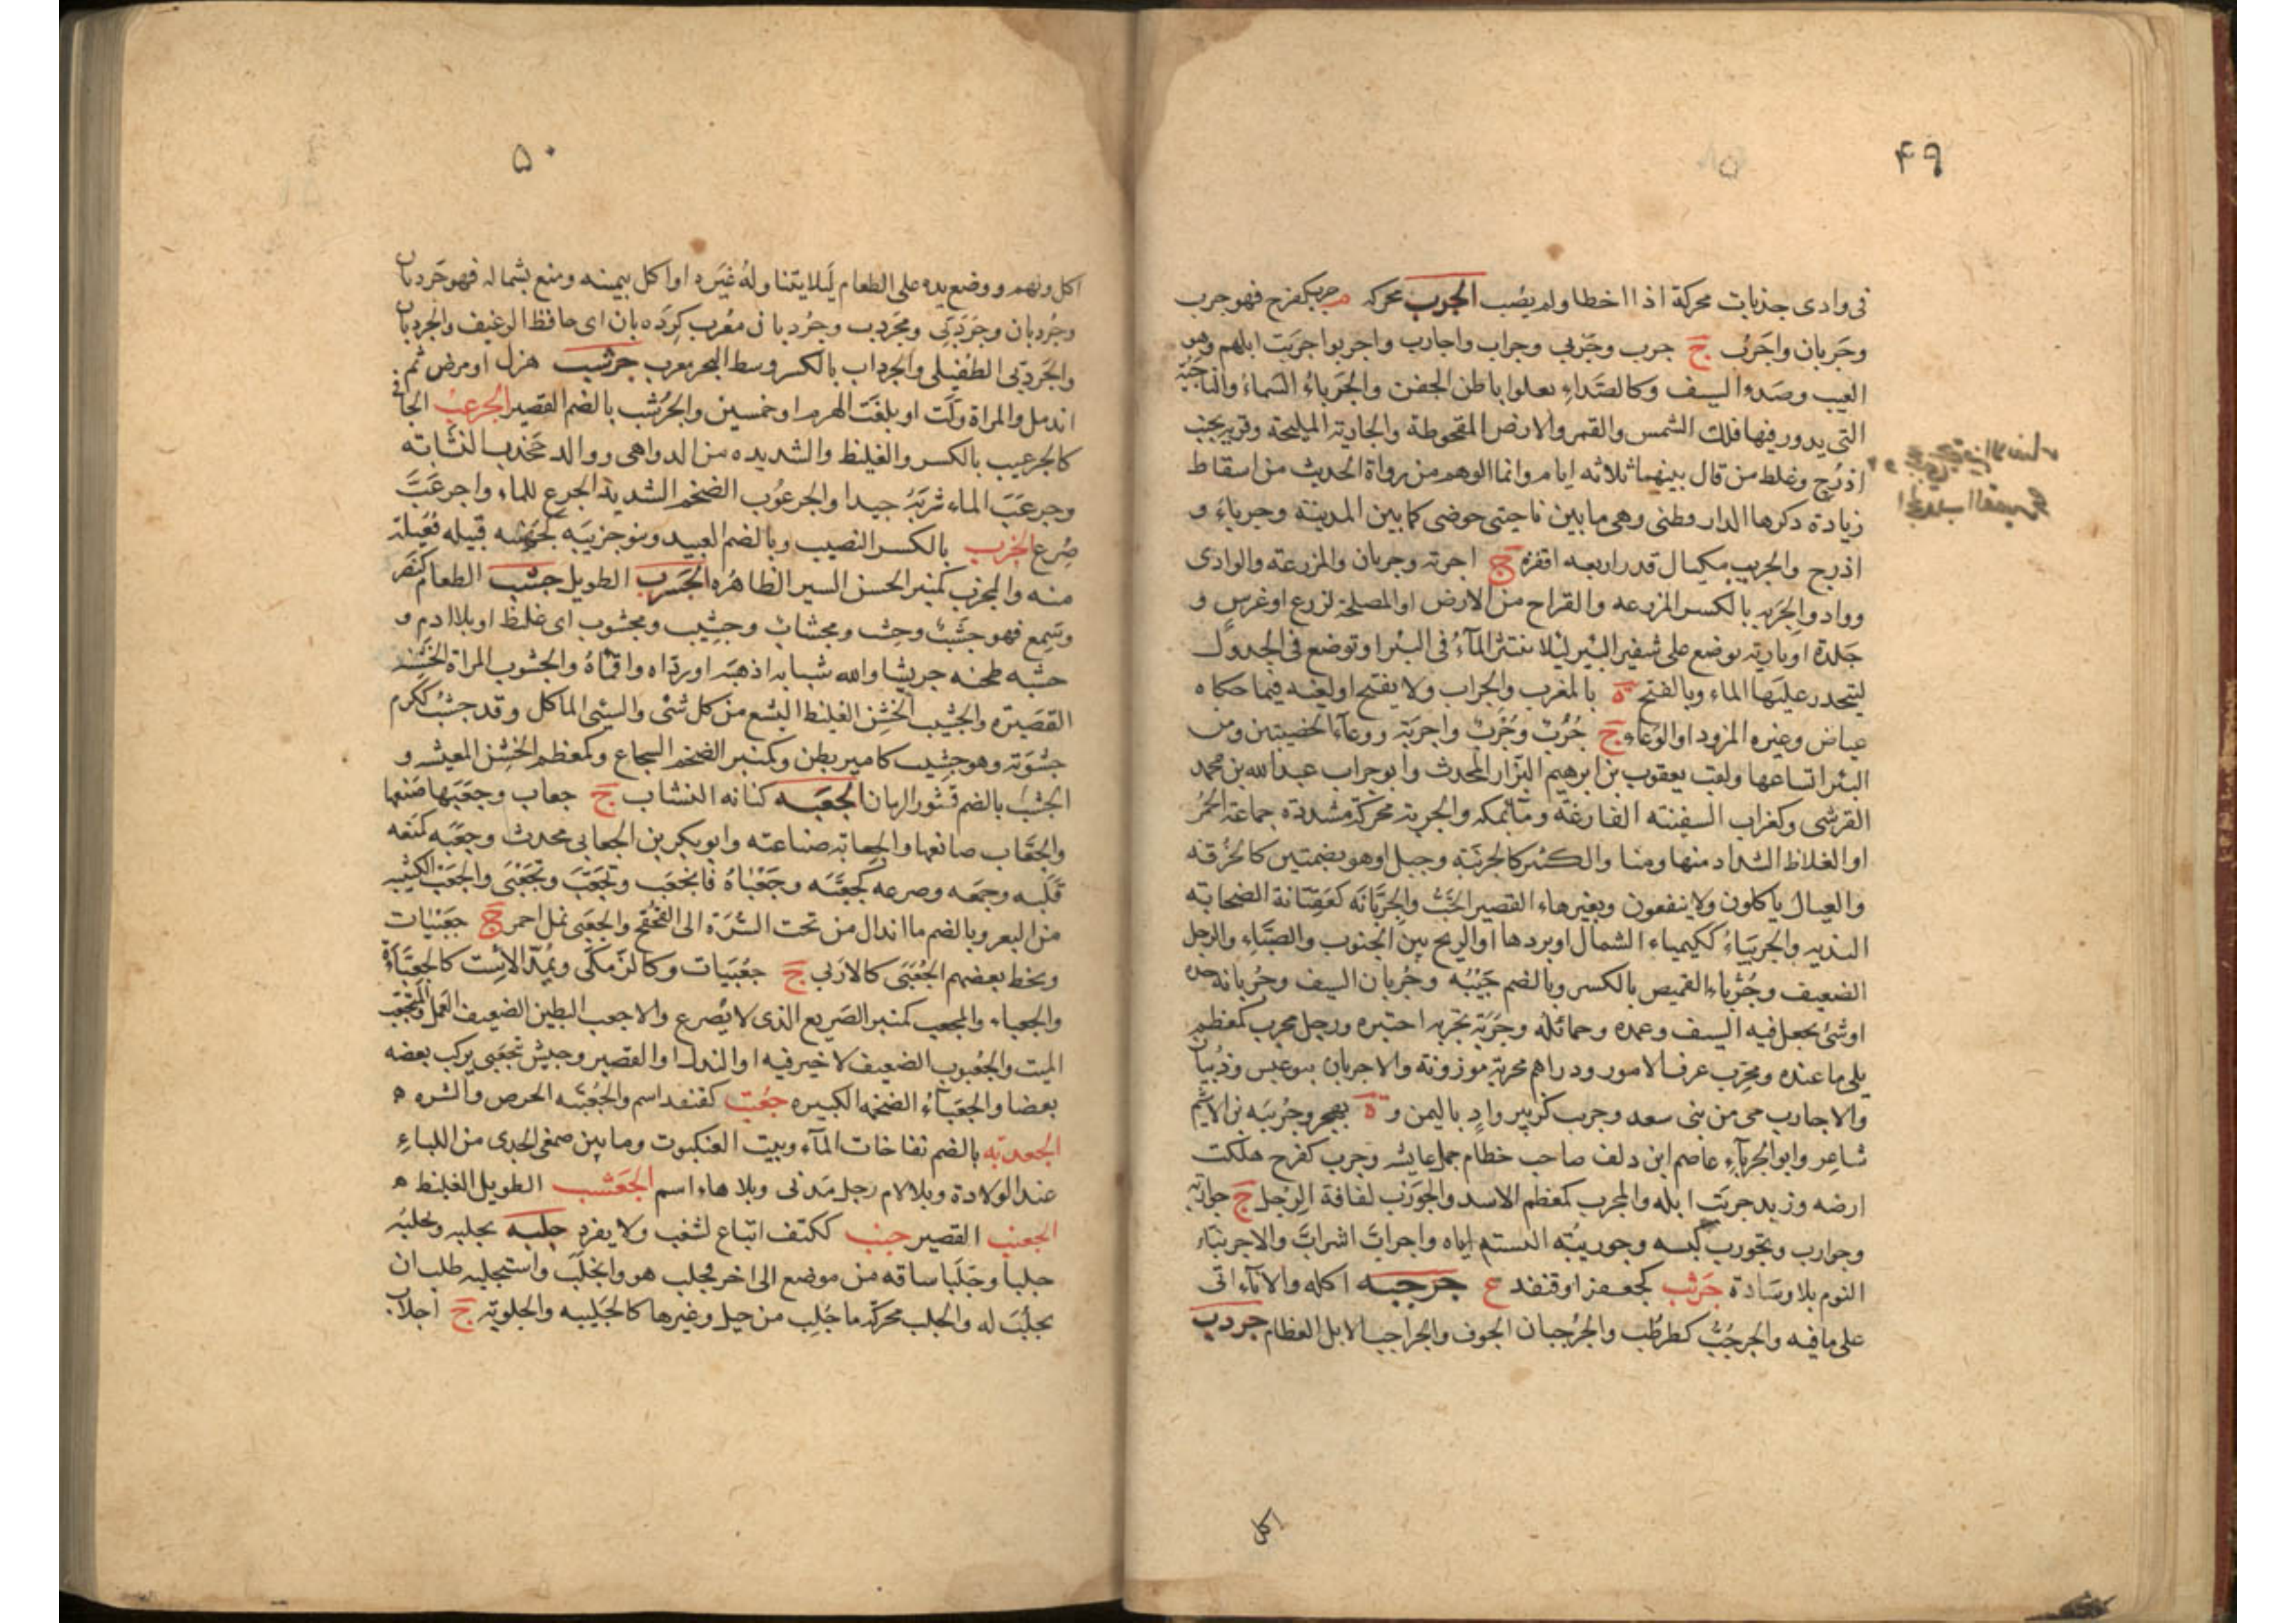 ۴۹
فى وادى جذبات محركة اذا اخطا ولم يصب الجرب محركه م جرب كفرح فهو جرب
وجَربان واجرَب ج جرب وجَربى وجراب واجارب واجربوا جربَت ابلهم وهو
العيب وصَدوا السيف وكالصَداءِ يعلوا باطن الجفن والجَرباءُ السَماءُ والناحيَة
التى يدور فيها فلك الشمس والقمر والارض المقحوطة والجارية المليحة وقرية بجنب
اذرُح وغلط من قال بينهما ثلاثه ايام وانما الوهم من رواة الحديث من اسقاط
زيادة ذكرها الدارقطنى وهى ما بين ناحيتى حوضى كما بين المدينة وجرباءُ و
اذرح والجريب مكيال قدر اربعه اقفزه ج اجربة وجربان والمزرعته والوادى
وواد والجَربه بالكسر المزرعه والقراح من الارض او المصلحة لزرع او غرسٍ و
جَلدة او بارية توضع على شفير البئر ليلا ينتثر المآءُ فى البئر او توضع فى الجدول
ليتحدر عليَها الماء وبالفتح ة بالمغرب والجِراب ولا يفتح او لغيه فيما حكاه
عياض وغيره المزود او الوِعاء ج جُرُبٌ وجُرْبٌ واجربَة ووعآءُ الخصيتين ومن
البئر اتساعها ولقب يعقوب بن ابرهيم البزّار المحدث وابو جراب عبد الله بن محمد
القرشى وكغراب السفينته الفارغة وماءٌ بمكه والجربة محركةً مشددة جماعة الحمُرِ
او الغلاظ الشداد منها ومنا والكثير كالجرنبَة وجبل او هو بضمتين كالحُزُقه
والعيال ياكلون ولا ينفعون وبغيرهاء القصير الخَبُّ والجِرِبَّانَه كعَفِتّانة الصخابه
البذيه والجِربياءُ ككيمياء الشمال او بردها او الريح بين الجنوب والصَّباءِ والرجل
الضعيف وجُرُبّاء القميص بالكسر وبالضم جَيْبُه وجُربان السيف وجُربانه حده
او شئ يجعل فيه السيف وغمده وحمائله وجرَبَة تجربه اختبره ورجل مجرب كمعظم
بلى ما عنده ومجرِب عرف الامور ودراهم مجربة موزونة والاجربان بنو عبس وذُبيان
والاجارب حى من بنى سعد وجرب كزبير وادٍ باليمن و ة بهجر وجُرَيبَه بن الاشيم
شاعر وابو الجرباءِ عاصم ابن دلف صاحب خطام جمل عايشه وجرب كفرح هلكت
ارضه وزيد جربَت ابله والمجرب كمعظم الاسد والجَورَب لفافة الرِجل ج جواربَة
وجوارب وتجورب لبسه وجوربتُه البسته اياه واجرابَّ اشرابَّ والاجرنباء
النوم بلا وسَادة جَرثب كجعفر او قنفد ع جرجبه اكله والاناءَ اتى
على ما فيه والجرجُبُّ كطرطُب والجُرْجبان الجوف والجراجب الابل العظام جردب
اكل
۵۰
اكل ونهم ووضع يده على الطعام لَئلا يتناوله غيره او اكل بيمينه ومنع بشماله فهو جَردبان
وجُردبان وجَرَدبَى ومجَردب وجَردبانى معُرب كِردَه بان اى حافظ الرغيف والجَردبان
والجَردبى الطُفيلى والجِرداب بالكسر وسط البحر معرب جرشب هزل او مرض ثم
اندمل والمراة ولَّت او بلغَت الهرم او خمسين والجُرشب بالضم القصير الجَرعَب الجافى
كالجِرعيب بالكسر والغيلظ والشديده من الدواهى ووالد جَخدب النسّابه
وجرعَبَ الماء شربَهُ جيدا والجرعوُب الضخم الشديد الجرع للماءِ واجرعَبَّ
صُرِع الجزب بالكسر النصيب وبالضم العبيد وبنو جزيبَه كجهينه قبيله فُعيلة
منه والمجزب كمنبر الحسن السير الظاهرُه الجَسرَب الطويل جشب الطعام كنَصَر
وسَمِع فهو جَشبٌ وجشِب ومجشابٌ وجَشِيب ومجشوب اى غلظ او بلا ادمٍ و
جشبه طحنه جريشا والله شبابه اذهبَه او رداه واقماهُ والجشوب المراة الخَشِنة
القصيَره والجشيْب الخشِن الغليظ البشع من كل شئ والسيئ الماكل وقد جشُب ككرم
جشوبة وهو جشيب كامير بطن وكمنبر الضخم الشجاع وكمعظم الخشِن المعيشه و
الجُشْب بالضم قشور الرمان الجعبَه كنانه النشاب ج جعاب وجعَبَها صَنعها
والجَعّاب صانعها والجعابة صناعته وابو بكر بن الجعابى محدث وجَعَبَه كمنعه
قَلَبه وجمَعه وصرعه كجَعَّبَه وجَعْباهُ فانجعَب وتجعَّبَ وتجَعْبَى والجَعْب الكثيبه
من البعر وبالضم ما اندال من تحت السُرَة الى القُحْقُح والجُعَبى نمل احمر ج جعَبْيات
وبخط بعضهم الجُعَبَى كالاربى ج جعُبَيات وكالزمكّى ويُمدّ الاِست كالجعبَّاءة
والجعباء والمجعب كمنبر الصَريع الذى لا يُصرع والاجعب البطين الضعيف العمل والمتجعب
الميت والجُعبوب الضعيف لا خير فيه او النذل او القصير وجيش يتجعبى يركب بعضه
بعضا والجعَبآءُ الضخمه الكبيره جعُثب كقنفد اسم والجُعثبَه الحرص والشره
الجُعدبه بالضم نفاخات المآء وبيت العنكبوت وما بين صمغى الجدى من اللباءِ
عند الولادة وبلالام رجل مَدنى وبلا هاءِ اسم الجَعشب الطويل الغليظ
الجعنب القصير جغب ككتف اتباع لشغب ولا يفرد جلبه يجلبه ويجلُبه
جلبا وجَلَبا ساقه من موضع الى اخر فجلب هو وانجلَبَ واستجلبه طلب ان
يجلُبَ له والجلب محركة ما جُلِب من خيل وغيرها كالجَليبه والجلوبة ج اجلاب